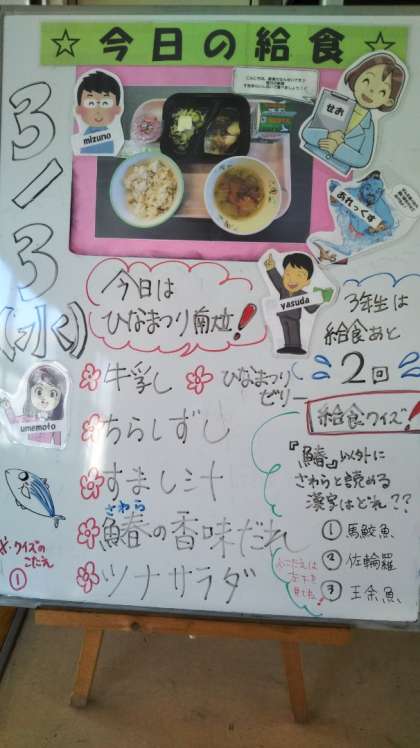 ☆今日の給食☆
3/3(水)
mizuno
せお
あれっくす
yasuda
今日は
ひなまつり献立!
3年生は
給食あと
2回
牛乳
ひなまつり
ゼリー
ちらしずし
すまし汁
さわら
鰆の香味だれ
ツナサラダ
umemoto
給食クイズ!
『鰆』以外に
さわらと読める
漢字はどれ??
① 馬鮫魚
② 佐輪羅
③ 王余魚
※こたえは
左下を
見てね!
※クイズの
こたえ
①